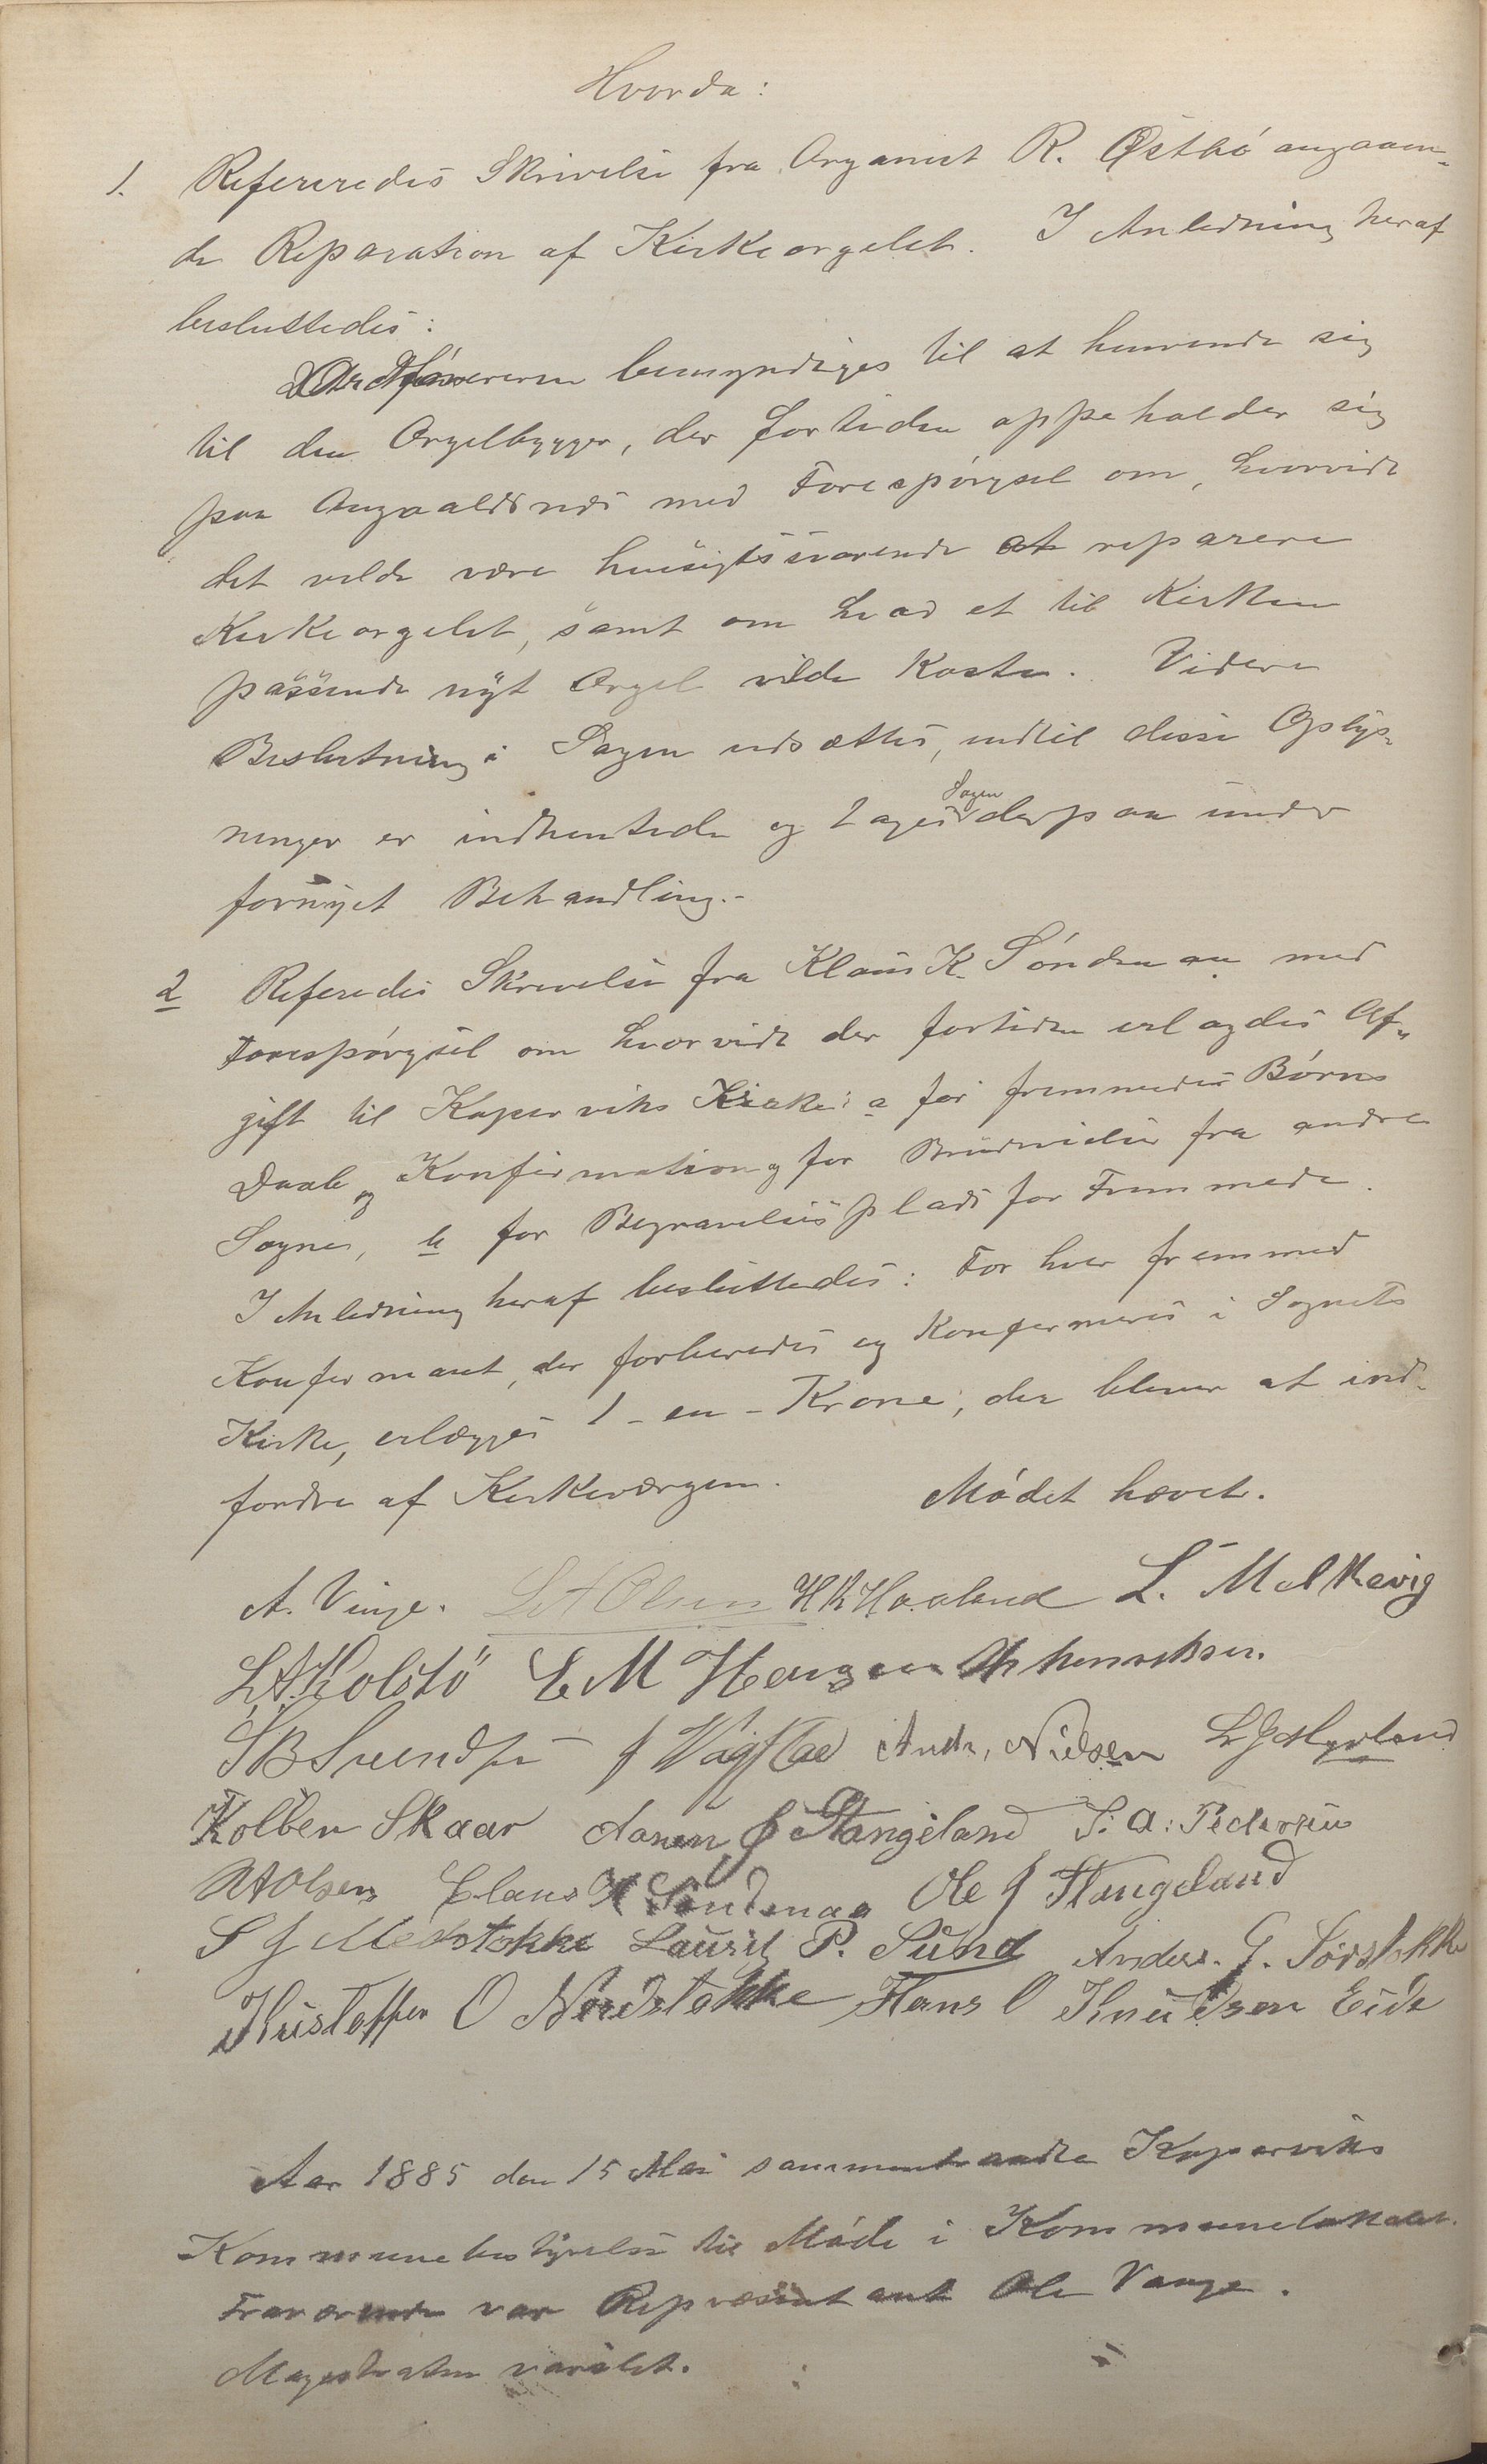 Hvorda:
1. Refereredes Skrivelse fra Organist R. Østbó angaaen-
de Reparation af Kirkeorgelet. I Anledning heraf
besluttedes:
Ordføreren bemyndiges til at henvende sig
til den Orgelbygger, der fortiden oppeholder sig
paa Augvaldsnæs med Forespórgsel om, hvorvidt
det vilde være hensigtssvarende at reparere
Kirkeorgelet, samt om hvad et til Kirken
passende nyt Orgel vilde koste. Videre
Beslutning i Sagen udsættes, indtil disse Oplys-
ninger er indhentede og tages Sagen derpaa under
fornyet Behandling.-
2 Referedes Skrivelse fra Klaus K. Sóndenaa med
Forespórgsel om hvorvidt der fortiden erlagdes Af-
gift til Koperviks Kirke: a for fremmedes Børns
Daab og Konfirmation og for Brudevielser fra andre
Sogne, b for Begravelsesplads for Fremmede.
I Anledning heraf besluttedes: For hver fremmed
Konfirmant, der forberedes og konfirmeres i Sognets
Kirke, erlægges 1 - en - Krone, der bliver at ind-
fordre af Kirkeværgen. Mødet hævet.
A. Vinje. L A Olsen H K Haaland L. Melkevig
L. A. Kolstö E M Hansen
S B Svendsen J Vagslae Andr. Nielsen L J Myrland
Kolben Skaar J Stangeland S. A. Pedersen
N A Olsen Claus K Sóndenaa Ole J Stangeland
S J Medstokke Lauritz P. Sund Anders. G. Sørstokke
Kristoffer O Nordstokke Hans O Knudsen Eide
Aar 1885 den 15 Mai sammentraadte Koperviks
Kommunebestyrelse til Møde i Kommunelokalet.
Fraværende var Repræsentant Ole Vange.
Magistraten varslet.